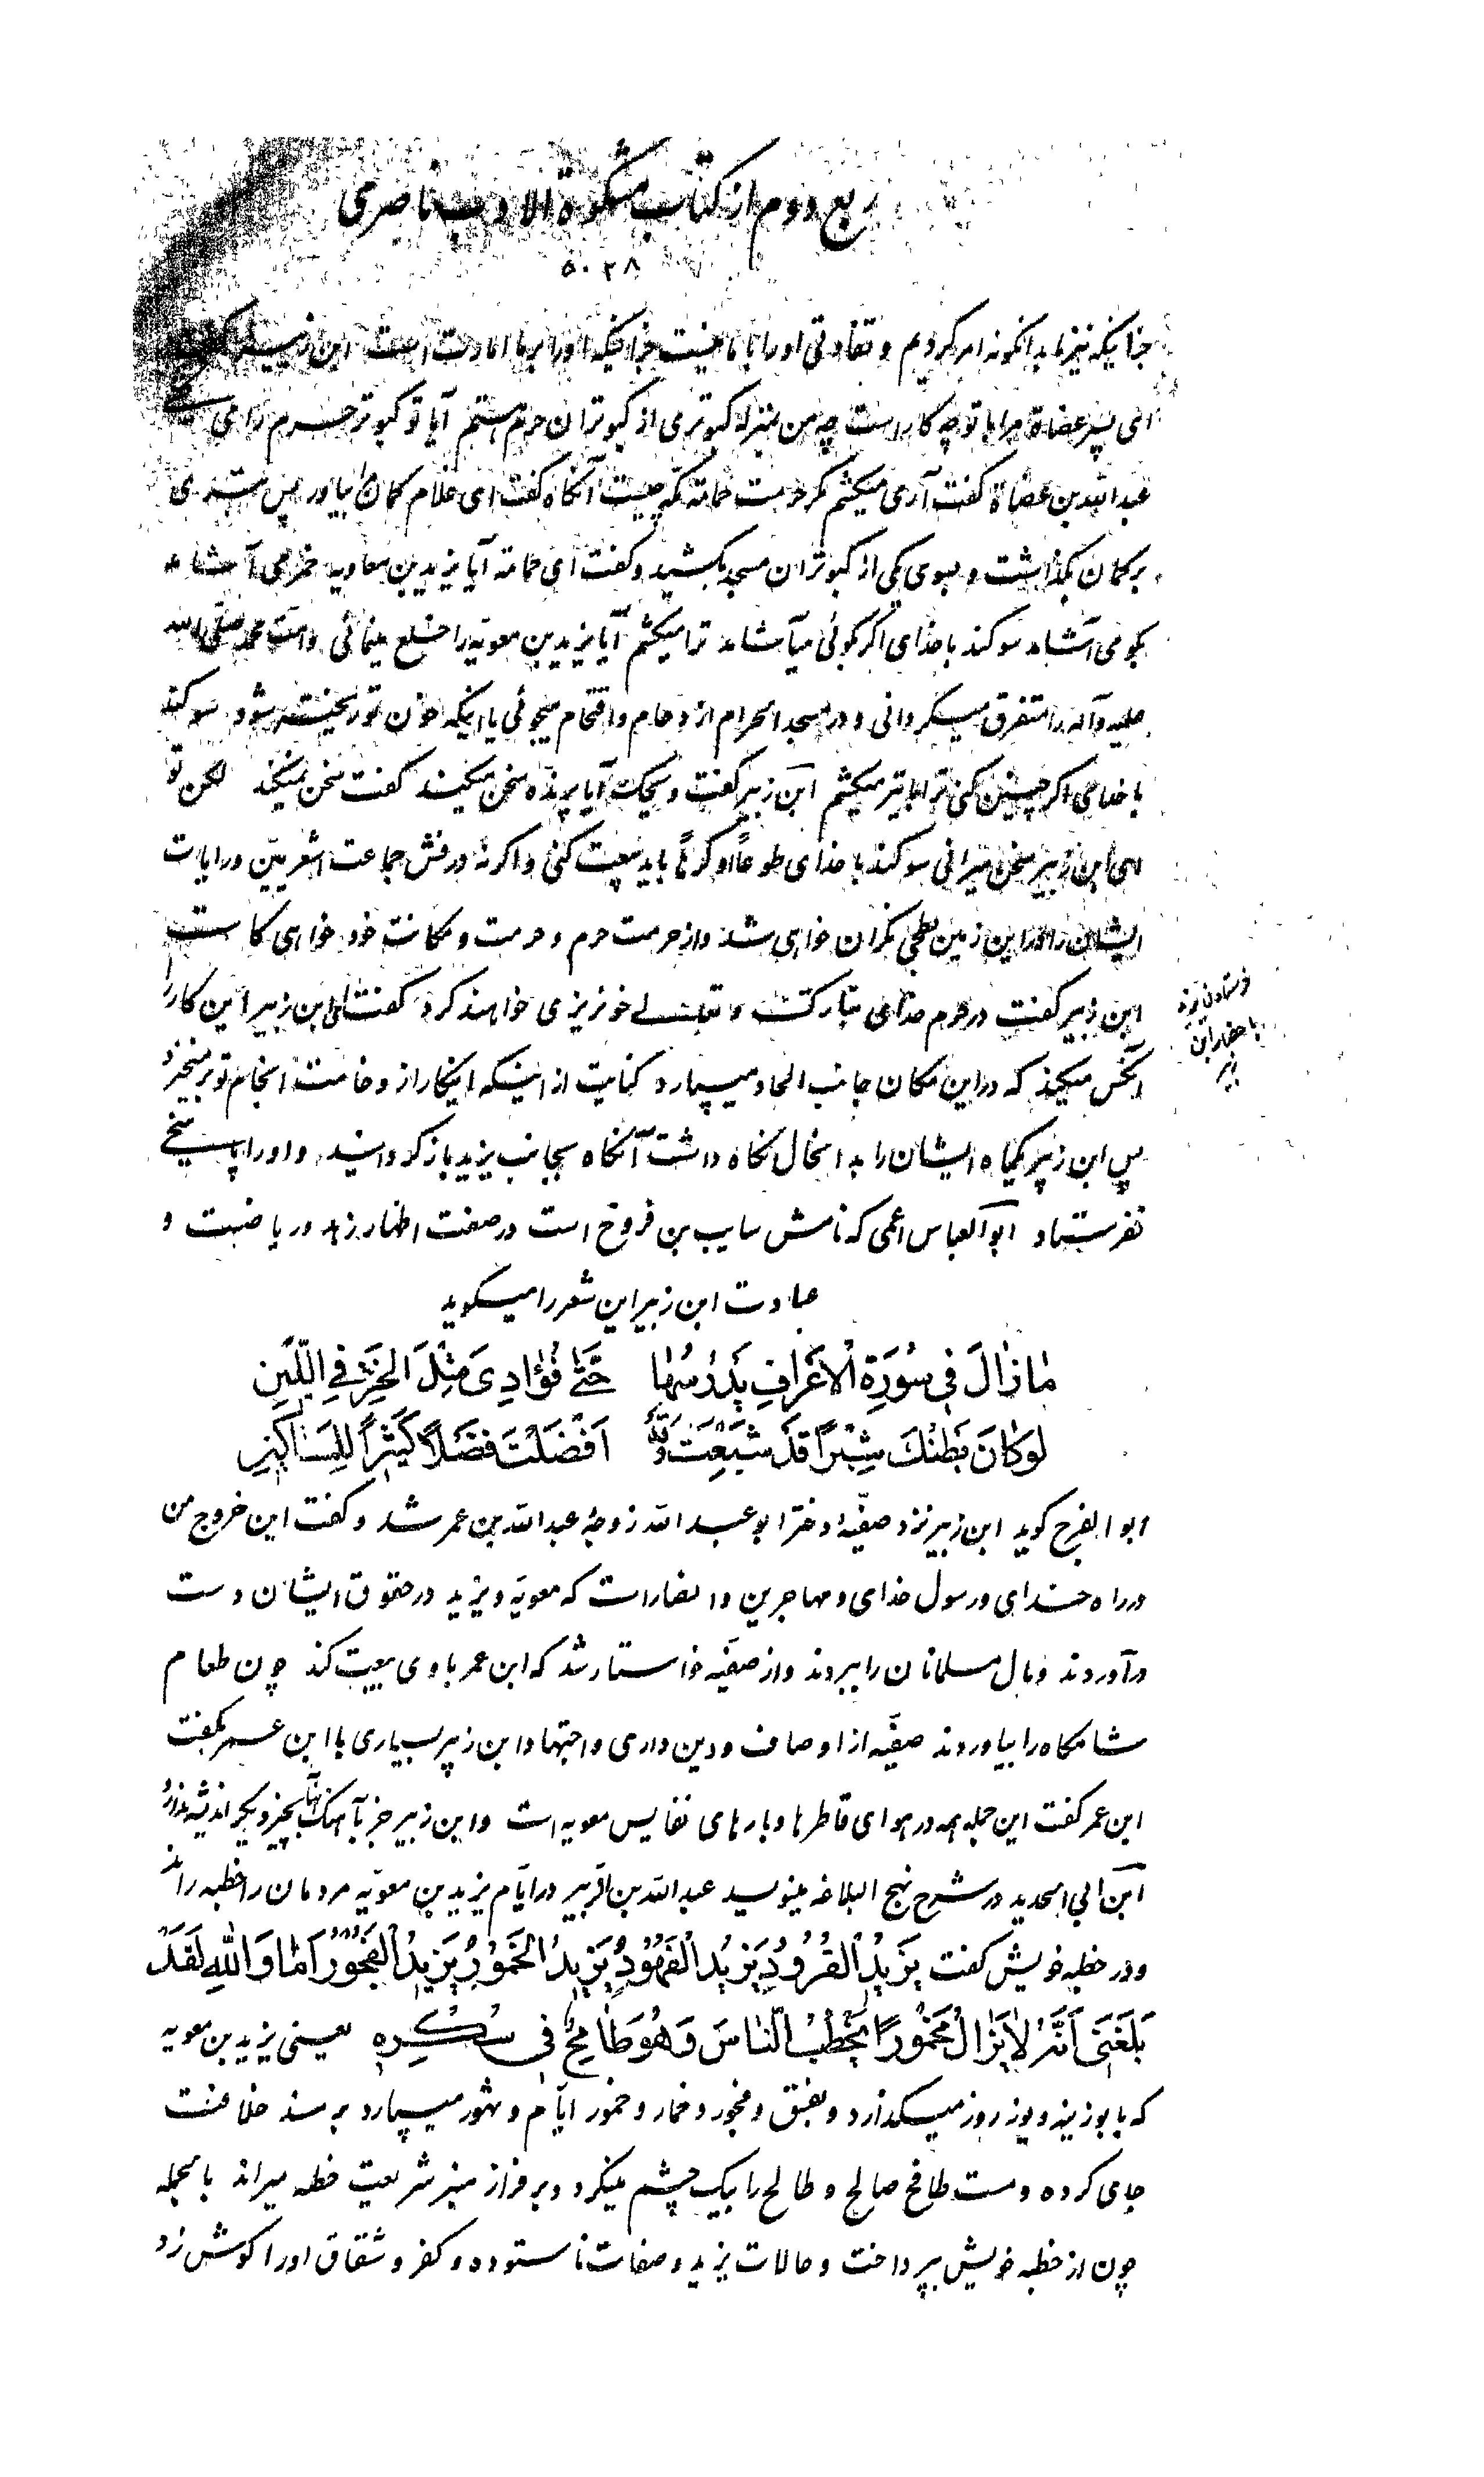 ربع دوم از کتاب مشکوة الادب ناصری
۵۰۲۸
چنانکه نیز ما بدانگونه امر کردیم و تفاوتی او را با ما نیست جز اینکه او را بر ما امارت است ابن زبیر گفت
ای پسر عضاة مرا با تو چه کار است چه من بمنزله کبوتری از کبوتران حرم هستم آیا تو کبوتر حرم را می
عبدالله بن عضاة گفت آری میکشم مگر حرمت حمامه مکه چیست آنگاه گفت ای غلام کمان بیاور پس تیری
بر کمان بگذاشت و بسوی یکی از کبوتران مسجد بکشید و گفت ای حمامه آیا یزید بن معاویه خمر می آشامد
بگو می آشامد سوگند با خدای اگر گوئی میآشامد ترا میکشم آیا یزید بن معویه را خلع مینمائی و امت محمد صلی الله
علیه و آله را متفرق میگردانی و در مسجد الحرام ازدحام و اقتحام میجوئی یا اینکه خون تو ریخته شود سوگند
با خدای اگر چنین کنی ترا با تیر میکشم ابن زبیر گفت ویحک آیا پرنده سخن میکند گفت سخن نمیکند لکن تو
ای ابن زبیر سخن میرانی سوگند با خدای طوعا او کرها باید بیعت کنی و اگر نه درفش جماعت اشعریین و رایات
ایشان را در این زمین بطحی نگران خواهی شد و از حرمت حرم و حرمت و مکانت خود خواهی کاست
ابن زبیر گفت در حرم خدای تبارک و تعالی خونریزی خواهند کرد گفت ای ابن زبیر این کار را
آنکس میکند که در این مکان جانب الحاد میسپارد کنایت از اینکه اینکار از وخامت انجام تو برمیخیزد
فرستادن یزید
باحضار ابن
زبیر
پس ابن زبیر یکماه ایشان را بدانحال نگاه داشت آنگاه بجانب یزید بازگردانید و او را پاسخی
نفرستاد ابو العباس اعمی که نامش سایب بن فروخ است در صفت اظهار زهد و ریاضت و
عبادت ابن زبیر این شعر را میگوید
مٰا زٰالَ فِي سُورَةِ الْاَعْرٰافِ يَدْرُسُهٰا حَتّٰى فُؤٰادِيَ مِثْلَ الْخَزِّ فِي اللّينِ
لَوْ كٰانَ بَطْنُكَ شِبْراً قَدْ شَبِعْتَ وَقَدْ اَفْضَلْتَ فَضْلاً كَثيراً لِلْمَسٰاكينِ
ابو الفرج گوید ابن زبیر نزد صفیه دختر ابو عبید الله زوجه عبدالله بن عمر شد و گفت این خروج من
در راه خدای و رسول خدای و مهاجرین و انصار است که معویه و یزید در حقوق ایشان دست
درآوردند و مال مسلمانان را ببردند و از صفیه خواستار شد که ابن عمر با وی بیعت کند چون طعام
شامگاه را بیاوردند صفیه از اوصاف و دین داری و اجتهاد ابن زبیر بسیاری با ابن عمر بگفت
ابن عمر گفت این جمله همه در هوای قاطرها و بارهای نفایس معویه است و ابن زبیر جز بآهنگ آنها بچیز دیگر اندیشه ندارد
ابن ابی الحدید در شرح نهج البلاغه مینویسد عبدالله بن الزبیر در ایام یزید بن معویه مردمان را خطبه راند
و در خطبه خویش گفت يَزيدُ الْقُرُودِ يَزيدُ الْفُهُودِ يَزيدُ الْخُمُورِ يَزيدُ الْفُجُورِ اَمٰا وَاللهِ لَقَدْ
بَلَغَنى اَنَّهُ لاٰ يَزٰالُ مَخْمُورًا يَخْطُبُ النّٰاسَ وَهُوَ طٰافِحٌ فى سُكْرِهِ یعنی یزید بن معویه
که با بوزینه و یوز روز میگذارد و بفسق و فجور و خمار و خمور ایام و شهور میسپارد بر مسند خلافت
جای کرده و مست طافح صالح و طالح را بیک چشم مینگرد و بر فراز منبر شریعت خطبه میراند بالجمله
چون از خطبه خویش بپرداخت و حالات یزید و صفات ناستوده و کفر و شقاق او را گوش زد